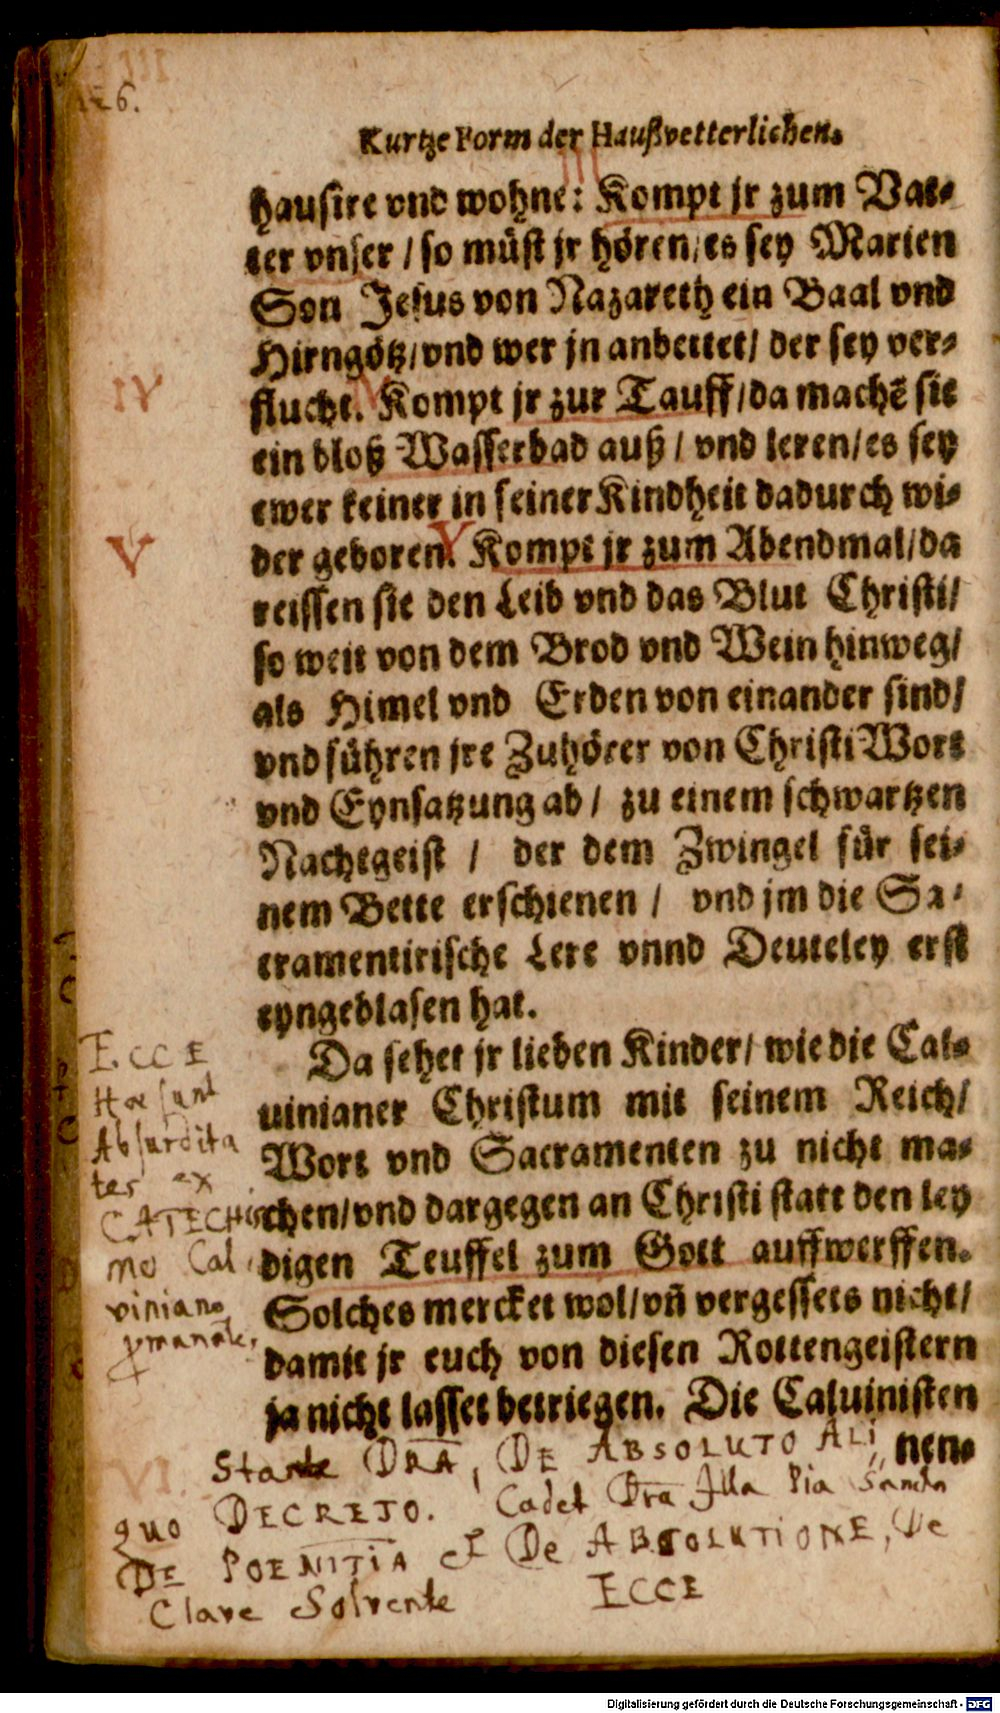 126.
Kurtze Form der Haußvetterlichen.
III
hausire vnd wohne: Kompt jr zum Vat-
ter vnser / so müst jr hören / es sey Marien
Son Jesus von Nazareth ein Baal vnd
Hirngötz / vnd wer jn anbettet / der sey ver-
IV flucht. Kompt jr zur Tauff / da machē sie
ein bloß Wasserbad auß / vnd leren / es sey
ewer keiner in seiner Kindheit dadurch wi-
V der geboren. V Kompt jr zum Abendmal / da
reissen sie den Leib vnd das Blut Christi /
so weit von dem Brod vnd Wein hinweg /
als Himel vnd Erden von einander sind /
vnd führen jre Zuhörer von Christi Wort
vnd Eynsatzung ab / zu einem schwartzen
Nachtgeist / der dem Zwingel für sei-
nem Bette erschienen / vnd jm die Sa-
cramentirische Lere vnnd Deuteley erst
eyngeblasen hat.
Da sehet jr lieben Kinder / wie die Cal-
uinianer Christum mit seinem Reich /
Wort vnd Sacramenten zu nicht ma-
chen / vnd dargegen an Christi statt den ley
digen Teuffel zum Gott auffwerffen.
Solches mercket wol / vñ vergessets nicht /
damit jr euch von diesen Rottengeistern
ja nicht lasset betriegen. Die Caluinisten
nen-
ECCE
Hae sunt
Absurdita
tes ex
CATECHIS
mo Cal
vinian
VI.
Stante DRA, DE ABSOLUTO ALI,,
quo DECRETO. Cadet Dra Illa Pia Sancta
DE POENITIA ET De ABSOLUTIONE, De
Clave Solvente ECCE
Digitalisierung gefördert durch die Deutsche Forschungsgemeinschaft - DFG